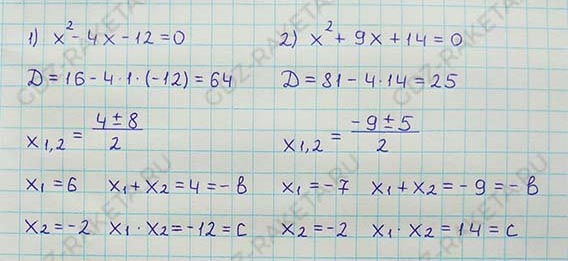 1) x² - 4x - 12 = 0
D = 16 - 4·1·(-12) = 64
x₁,₂ = (4 ± 8)/2
x₁ = 6 x₁ + x₂ = 4 = - b
x₂ = -2 x₁ · x₂ = -12 = c
2) x² + 9x + 14 = 0
D = 81 - 4·14 = 25
x₁,₂ = (-9 ± 5)/2
x₁ = -7 x₁ + x₂ = -9 = - b
x₂ = -2 x₁ · x₂ = 14 = c
GDZ-RAKETA.RU